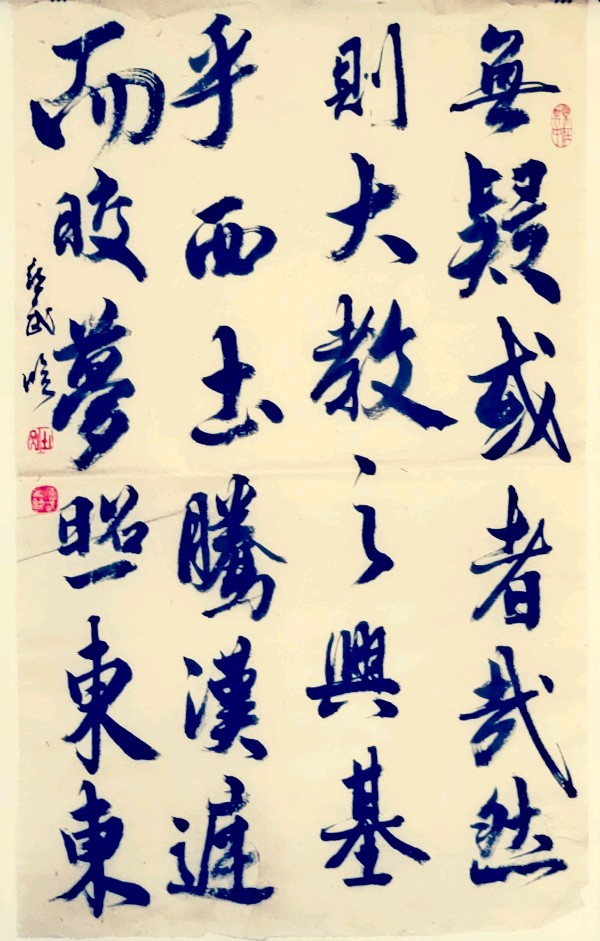 無疑或者哉然
則大教之興基
乎西土騰漢庭
而皎夢照東東
武臨